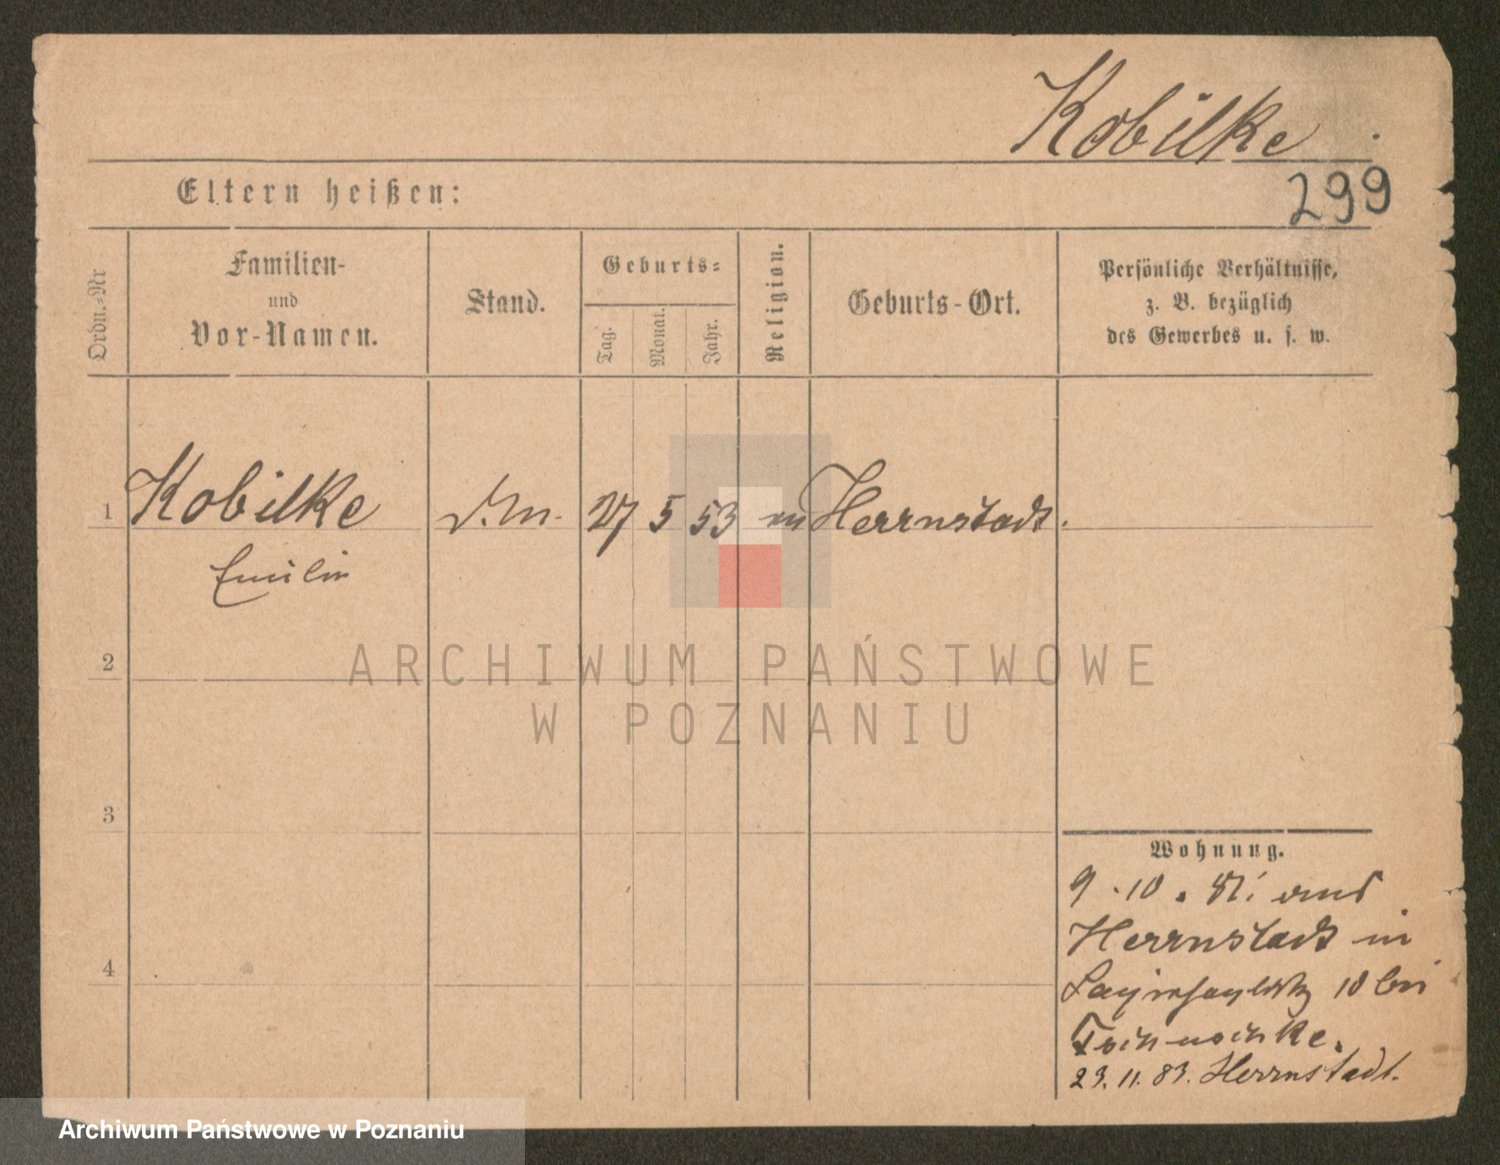 Kobilke
299
Eltern heißen:
Ordn.-Nr
Familien-
und
Vor-Namen.
Stand.
Geburts-
Tag.
Monat.
Jahr.
Religion.
Geburts-Ort.
Persönliche Verhältnisse,
z. B. bezüglich
des Gewerbes u. s. w.
1 Kobilke D.M. 27 5 53 ev Herrnstadt.
Emilie
ARCHIWUM PAŃSTWOWE
W POZNANIU
2
3
4
Wohnung.
9.10. 81. aus
Herrnstadt in
10 bei
23.11.83. Herrnstadt.
Archiwum Państwowe w Poznaniu